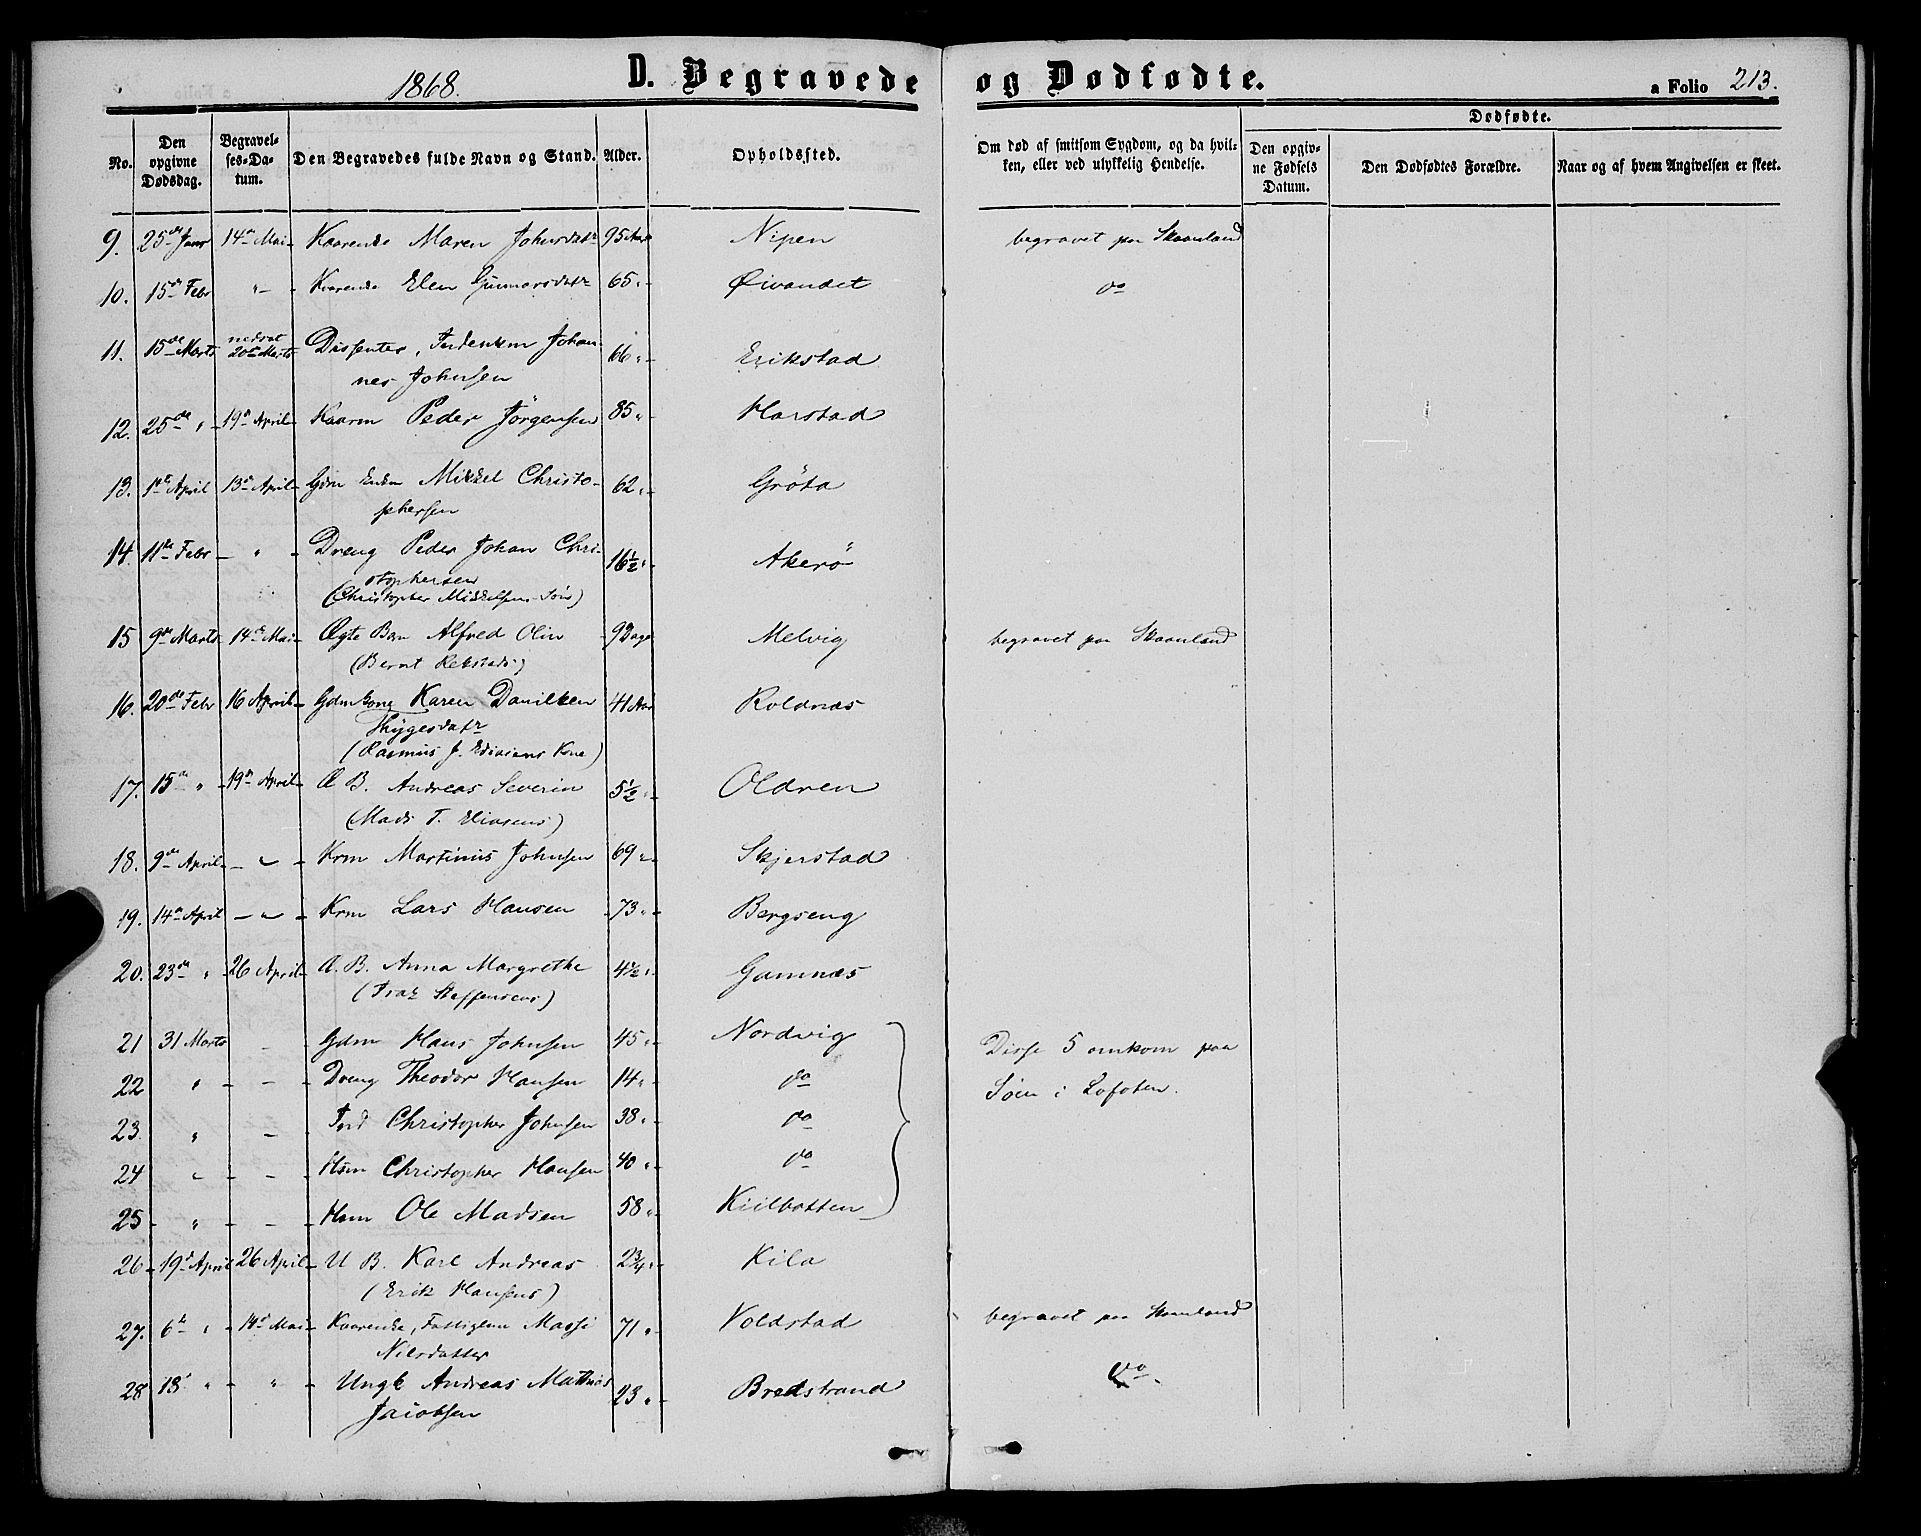 1868.
D. Begravede og Dødfødte.
a Folio 213.
No.
Den opgivne Dødsdag.
Begravel-ses-Da-tum.
Den Begravedes fulde Navn og Stand.
Alder.
Opholdssted.
Om død af smitsom Sygdom, og da hvil-ken, eller ved ulykkelig Hendelse.
Dødfødte.
Den opgiv-ne Fødsels Datum.
Den Dødfødtes Forældre.
Naar og af hvem Angivelsen er skeet.
9. 25de Janr 14de Mai Kaarenke Maren Johnsdatr 95 Aar Nipen begravet paa Skaanland
10. 15de Febr " Kaarenke Elen Gunnarsdatr 65 " Øivandet do
11. 15de Marts nedsat 20de Marts Dissenter, Johan-
nes Johnsen 66 " Erikstad
12. 25de " 19de April Kaarm Peder Jörgensen 85 " Harstad
13. 1ste April 13de April Gdm Enkm Mikkel Christo-
phersen 62 " Gröta
14. 11te Febr " Dreng Peder Johan Chri-
stophersen 16½ " Akerö
(Christopher Mikkelsens Søn)
15 9de Marts 14de Mai Ægte Barn Alfred Olin 9 Dage Melvig begravet paa Skaanland
(Bernt Rekstads)
16. 20de Febr 16 April Gdmkone Karen Danilken 41 Aar Roldnæs
Thygesdatr
(Rasmus J. Kone)
17. 15de " 19de April Æ B. Andreas Severin 5½ " Oldren
(Mads T. Eliasens)
18. 9de April " Krm Martinus Johnsen 69 " Skjerstad
19. 14de April " Krm Lars Hansen 73 " Bergseng
20. 23de " 26 April Æ. B. Anna Margrethe 4½ " Gamnæs
(Steffensens)
21 31 Marts - Gdm Hans Johnsen 45 " Nordvig Disse 5 omkom paa
22 " - Dreng Theodor Hansen 14 " do Søen i Lofoten.
23. " - Ind Christopher Johnsen 38 " do
24 " - Hsm Christopher Hansen 40 " do
25 " - Hsm Ole Madsen 58 " Kiilbotten
26 19de April 26 April U B. Karl Andreas 2¾ " Kila
(Erik Hansens)
27. 6te " 14de Mai Kaarenke, Fattiglem Massi 71 " Voldstad begravet paa Skaanland
Nilsdatter
28 13 " " Ungk Andreas Mathias 23 " Bredstrand do
Jacobsen